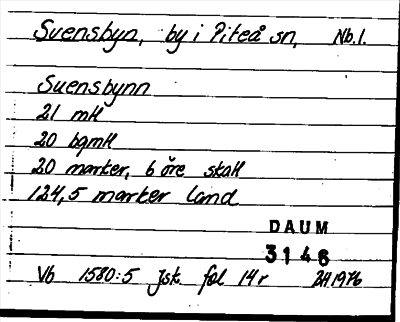 Svensbyn, by i Piteå sn, Nb.l.
Suensbynn
21 mtl
20 bgmtl
20 marker, 6 öre skatt
124,5 marker land
DAUM
3146
Vb 1580:5 Jsk fol 14r 2H1976